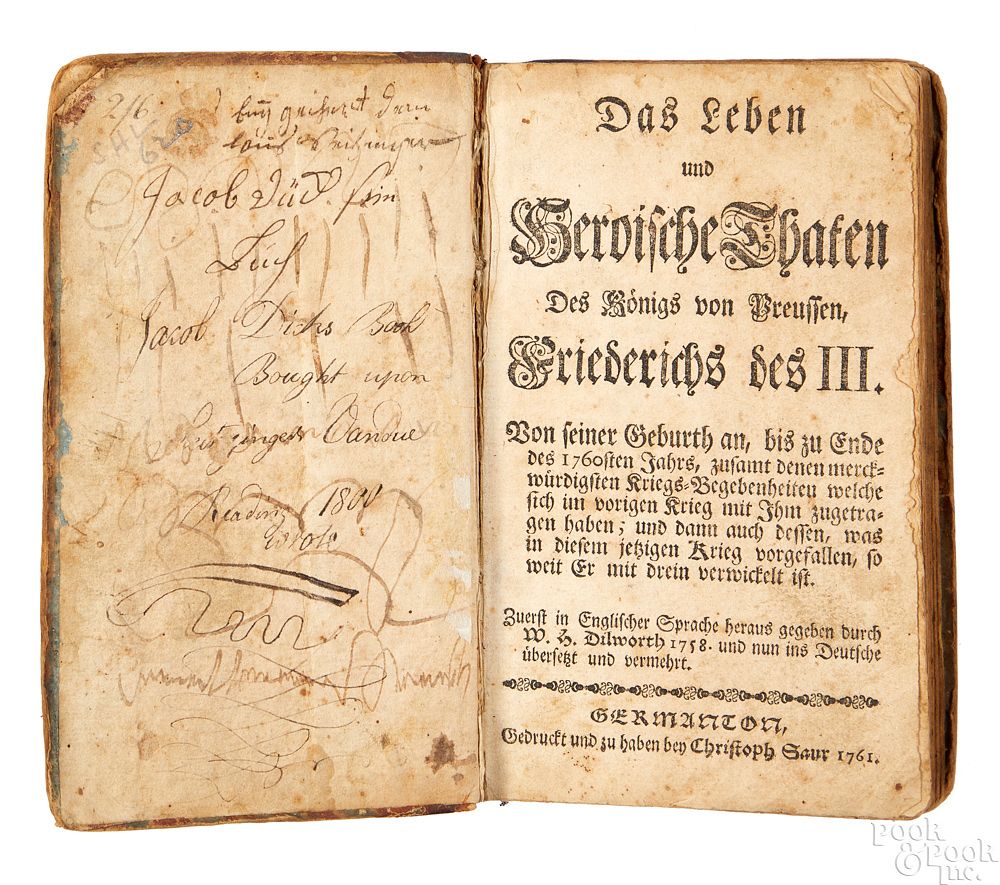 216
Jacob Dück sein
Buch
Jacob Dicks Book
Bought upon
Vandue
Reading 180
wrote
Das Leben
und
Heroische Thaten
Des Königs von Preussen,
Friederichs des III.
Von seiner Geburth an, bis zu Ende
des 1760sten Jahrs, zusamt denen merck-
würdigsten Kriegs-Begebenheiten welche
sich im vorigen Krieg mit Ihm zugetra-
gen haben; und dann auch dessen, was
in diesem jetzigen Krieg vorgefallen, so
weit Er mit drein verwickelt ist.
Zuerst in Englischer Sprache heraus gegeben durch
W. H. Dilworth 1758. und nun ins Deutsche
übersetzt und vermehrt.
GERMANTON,
Gedruckt und zu haben bey Christoph Saur 1761.
POOK
& POOK
Inc.